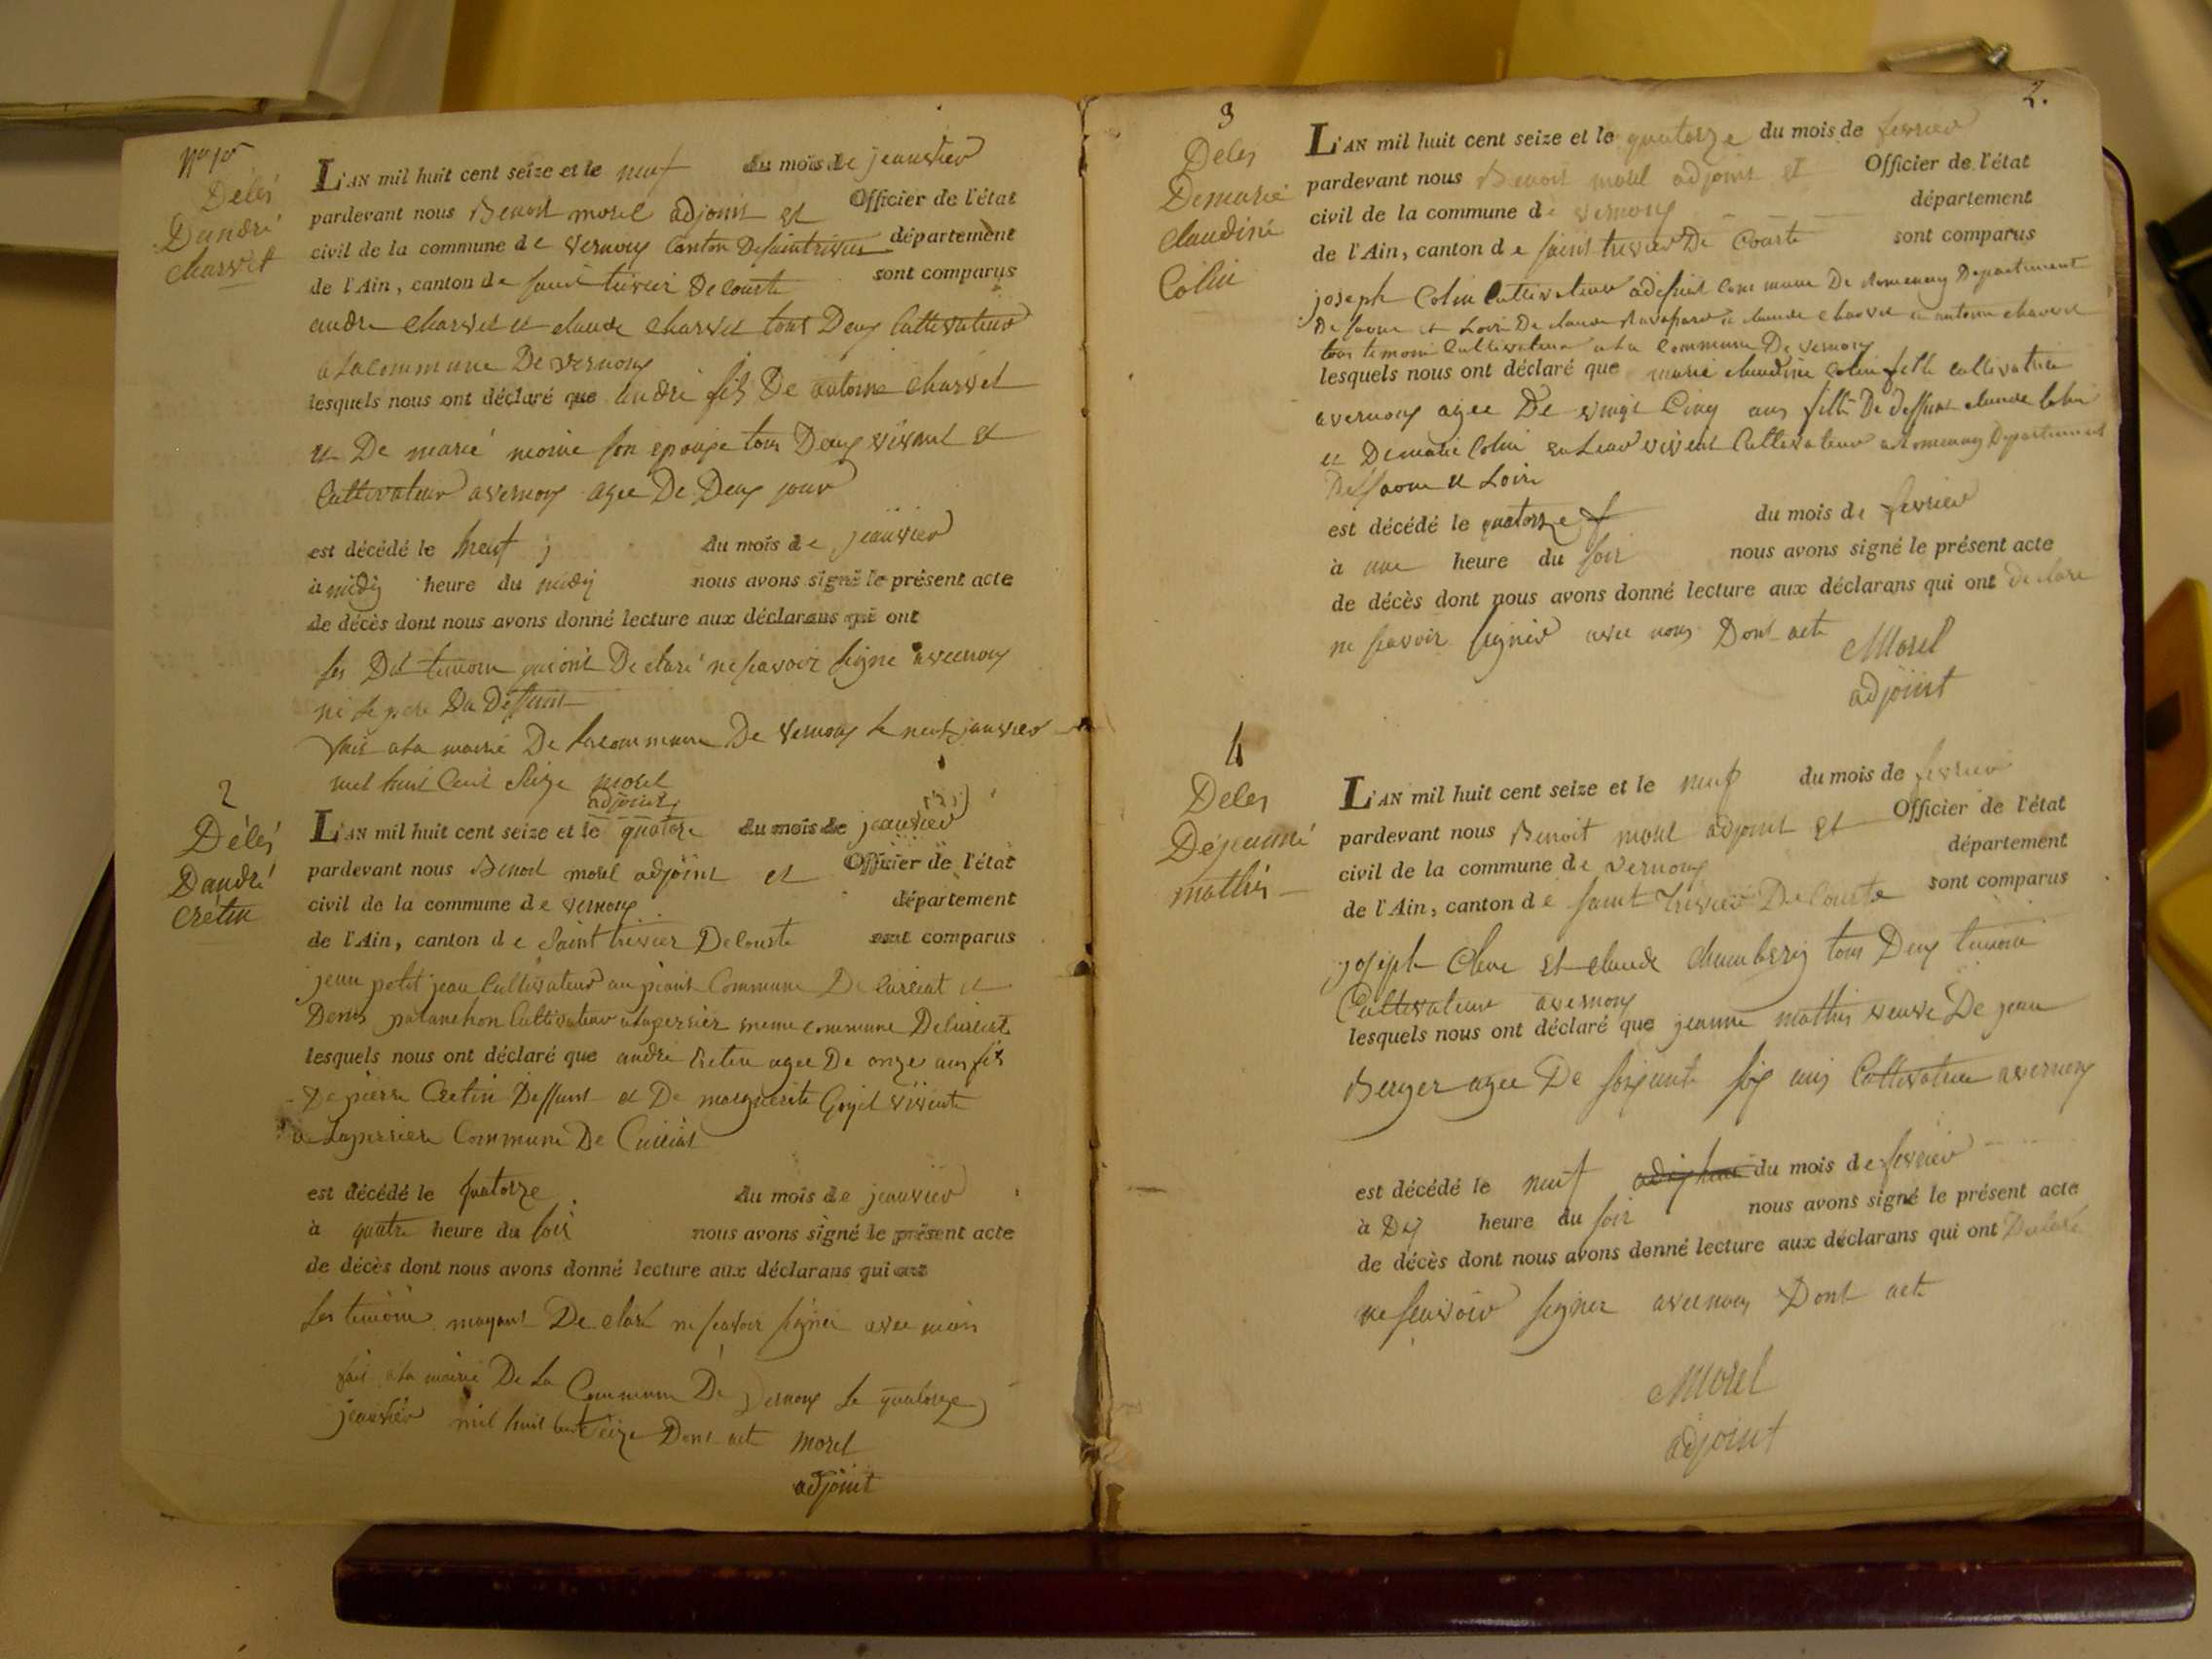 Nº 1er
Délés
Dandré
charvet
L'AN mil huit cent seize et le neuf du mois de jeanvier
pardevant nous Benoit morel adjoint et Officier de l'état
civil de la commune de vernoux Canton Desaintrivier département
de l'Ain, canton de saint trivier De courte sont comparus
andre charvet et claude charvet tous Deux Cultivateur
a La commune De vernoux
lesquels nous ont déclaré que andré fils De antoine charvet
et De marie moine son epouse tous Deux vivant et
Cultivateur a vernoux agee De Deux jour
est décédé le neuf du mois de jeanvier
à midy heure du midy nous avons signé le présent acte
de décès dont nous avons donné lecture aux déclarans qui ont
les Dit temoin qui ont Declaré ne scavoir signe avec nous
ni le pere Du Deffunt
fait a la mairie De la commune De vernoux le neuf janvier
mil huit Cent Seize morel
adjoint
2
Délés
Dandré
Crétin
L'AN mil huit cent seize et le quatorze du mois de jeanvier
pardevant nous Benoit morel adjoint et Officier de l'état
civil de la commune de vernoux département
de l'Ain, canton de Saint trivier De courte sont comparus
jean petit jean Cultivateur au Commune De Curciat et
Denis palanchon Cultivateur a laperriere meme commune De Curciat
lesquels nous ont déclaré que andré Cretin agee De onze ans fils
De pierre Cretin Deffunt et De marguerite vivente
a Laperriere Commune De Curciat
est décédé le quatorze du mois de jeanvier
à quatre heure du soir nous avons signé le présent acte
de décès dont nous avons donné lecture aux déclarans qui ont
Les temoin mayant De claré ne scavoir signer avec moi
fait a la mairie De La Commune De Vernoux Le quatorze
jeanvier mil huit Cent Seize Dont acte morel
adjoint
2.
3
Delés
De marie
claudine
Colin
L'AN mil huit cent seize et le quatorze du mois de fevrier
pardevant nous Benoit morel adjoint et Officier de l'état
civil de la commune de vernoux département
de l'Ain, canton de saint trivier De Courte sont comparus
joseph Colin Cultivateur Commune De Romenay Departement
De saone et Loire De claude claude charvet et antoine charvet
tous temoin Cultivateur a la Commune De vernoux
lesquels nous ont déclaré que marie claudine Colin fille cultivatrice
a vernoux agee De vingt Cinq ans fille De deffunt claude Colin
et De marie Colin vivent Cultivateur a Romenay Departement
De saone et Loire
est décédé le quatorze du mois de fevrier
à une heure du soir nous avons signé le présent acte
de décès dont nous avons donné lecture aux déclarans qui ont declare
ne scavoir signer avec nous Dont acte
Morel
adjoint
4
Delés
De jeanne
mathis
L'AN mil huit cent seize et le neuf du mois de fevrier
pardevant nous Benoit morel adjoint et Officier de l'état
civil de la commune de vernoux département
de l'Ain, canton de saint Trivier De Courte sont comparus
joseph et claude chamberry tous Deux temoin
Cultivateur a vernoux
lesquels nous ont déclaré que jeanne mathis veuve De jean
Berger agee De soixante six ans Cultivatrice a vernoux
est décédé le neuf du mois de fevrier
à Dix heure du soir nous avons signé le présent acte
de décès dont nous avons donné lecture aux déclarans qui ont Declaré
ne scavoir signer avec nous Dont acte
Morel
adjoint